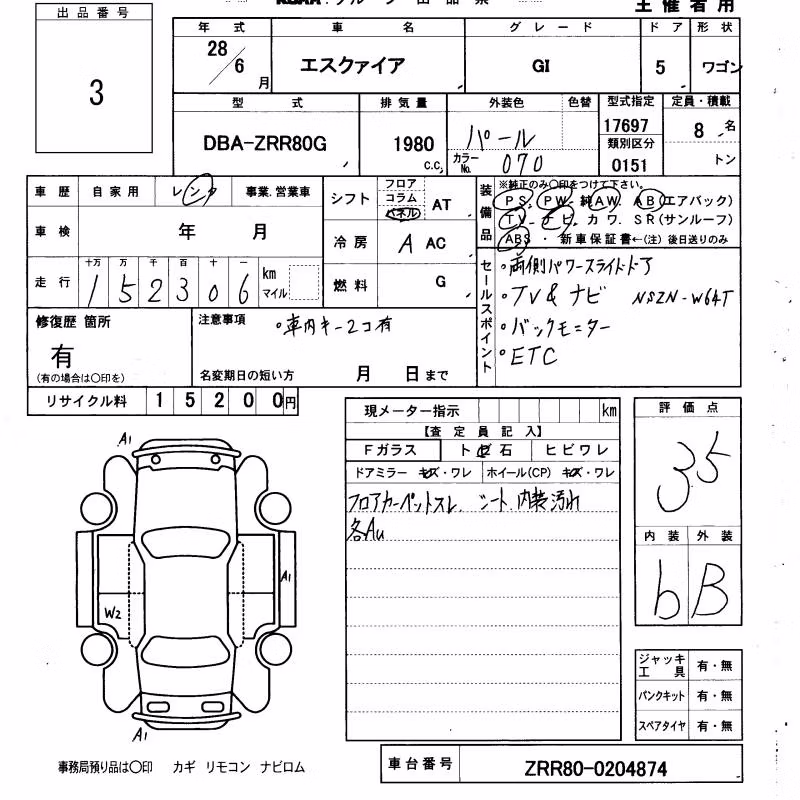 主催者用
出品番号
3
年式 車名 グレード ドア 形状
28/6月 エスクァイア GI 5 ワゴン
型式 排気量 外装色 色替 型式指定 定員・積載
DBA-ZRR80G 1980 c.c. パール 17697 8 名
カラーNo. 070 類別区分 0151 トン
車歴 自家用 レンタ 事業.営業車
車検 年 月
走行 十万 万 千 百 十 一
152306 km マイル
シフト フロア コラム パネル AT
冷房 A AC
燃料 G
装備品 ※純正のみ○印をつけて下さい。
PS. PW. 純AW. AB(エアバック)
TV. ナビ. カワ. SR(サンルーフ)
ABS ・ 新車保証書←(注) 後日送りのみ
セールスポイント
・両側パワースライドドア
・TV&ナビ NSZN-W64T
・バックモニター
・ETC
修復歴 箇所
有
(有の場合は○印を)
注意事項 ・車内キー2コ有
名変期日の短い方 月 日まで
リサイクル料 15200円
現メーター指示 km
【査定員記入】
Fガラス ト 石 ヒビワレ
ドアミラー キズ・ワレ ホイール(CP) キズ・ワレ
フロアカーペットスレ. シート.内装汚れ
各AU
評価点
3.5
内装 外装
b B
A1
A1
W2
A1
ジャッキ工具 有・無
パンクキット 有・無
スペアタイヤ 有・無
事務局預り品は○印 カギ リモコン ナビロム
車台番号 ZRR80-0204874